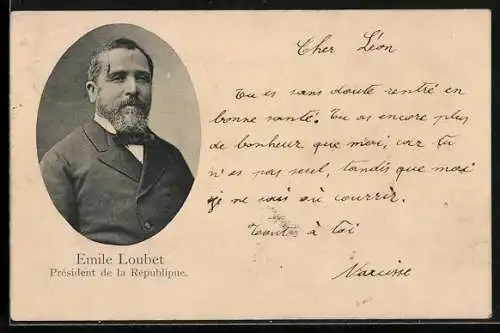 Cher Léon
Tu es sans doute rentré en
bonne santé. Tu as encore plus
de bonheur que moi, car tu
n'es pas seul, tandis que moi
je ne sais où courrir.
Tout à toi
Narcisse
Emile Loubet
Président de la République.